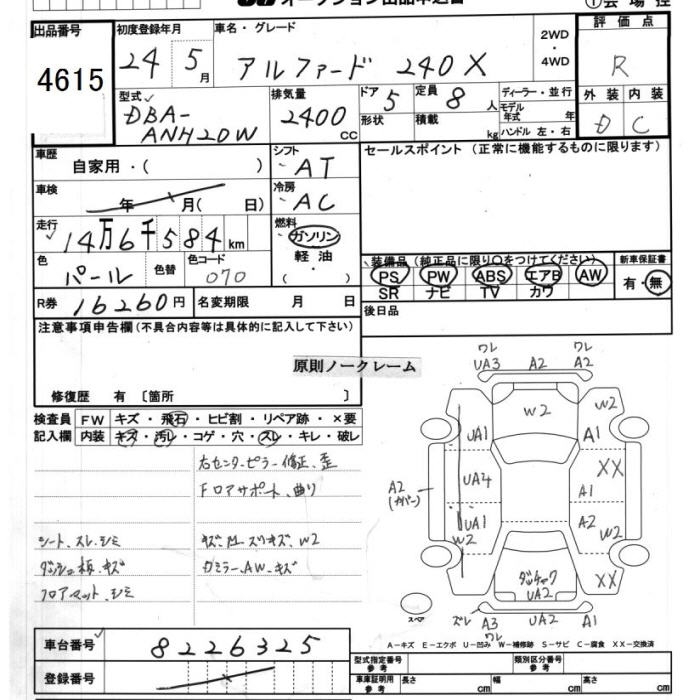 出品番号
4615
初度登録年月
24 5月
車名・グレード
アルファード 240X
2WD
・
4WD
評価点
R
外装 内装
D C
型式
DBA-
ANH20W
排気量
2400cc
ドア 5
定員 8人
形状
積載 kg
ディーラー・並行
モデル年式 年
ハンドル 左・右
車歴
自家用・( )
シフト
AT
車検
年 月( 日)
冷房
AC
走行
14万6千584km
燃料
ガソリン
軽油
( ・ )
色
パール
色替
色コード
070
R券 16260円
名変期限 月 日
セールスポイント (正常に機能するものに限ります)
装備品 (純正品に限り○をつけてください)
PS PW ABS エアB AW
SR ナビ TV カワ
新車保証書
有・無
後日品
注意事項申告欄(不具合内容等は具体的に記入して下さい)
原則ノークレーム
修復歴 有 〔箇所 〕
検査員
記入欄
FW キズ・飛石・ヒビ割・リペア跡・×要
内装 キズ・汚レ・コゲ・穴・スレ・キレ・破レ
右センターピラー修正、歪
Fロアサポート、曲り
シート、スレ、シミ
ダッシュ板、キズ
フロアマット、シミ
キズ、凹、スリキズ、W2
ガミラー、AW、キズ
ワレ
UA3
A2
ワレ
A2
W2
W2
UA1
A1
A2
(カバー)
UA4
XX
A1
UA1
W2
A2
W2
ダッチャク
UA2
XX
スペア
ズレ A3
ワレ
UA2
A1
A-キズ E-エクボ U-凹み W-補修跡 S-サビ C-腐食 XX-交換済
車台番号
8226325
登録番号
型式指定番号
参考
類別区分番号
参考
車庫証明用
参考
長さ cm
幅 cm
高さ cm